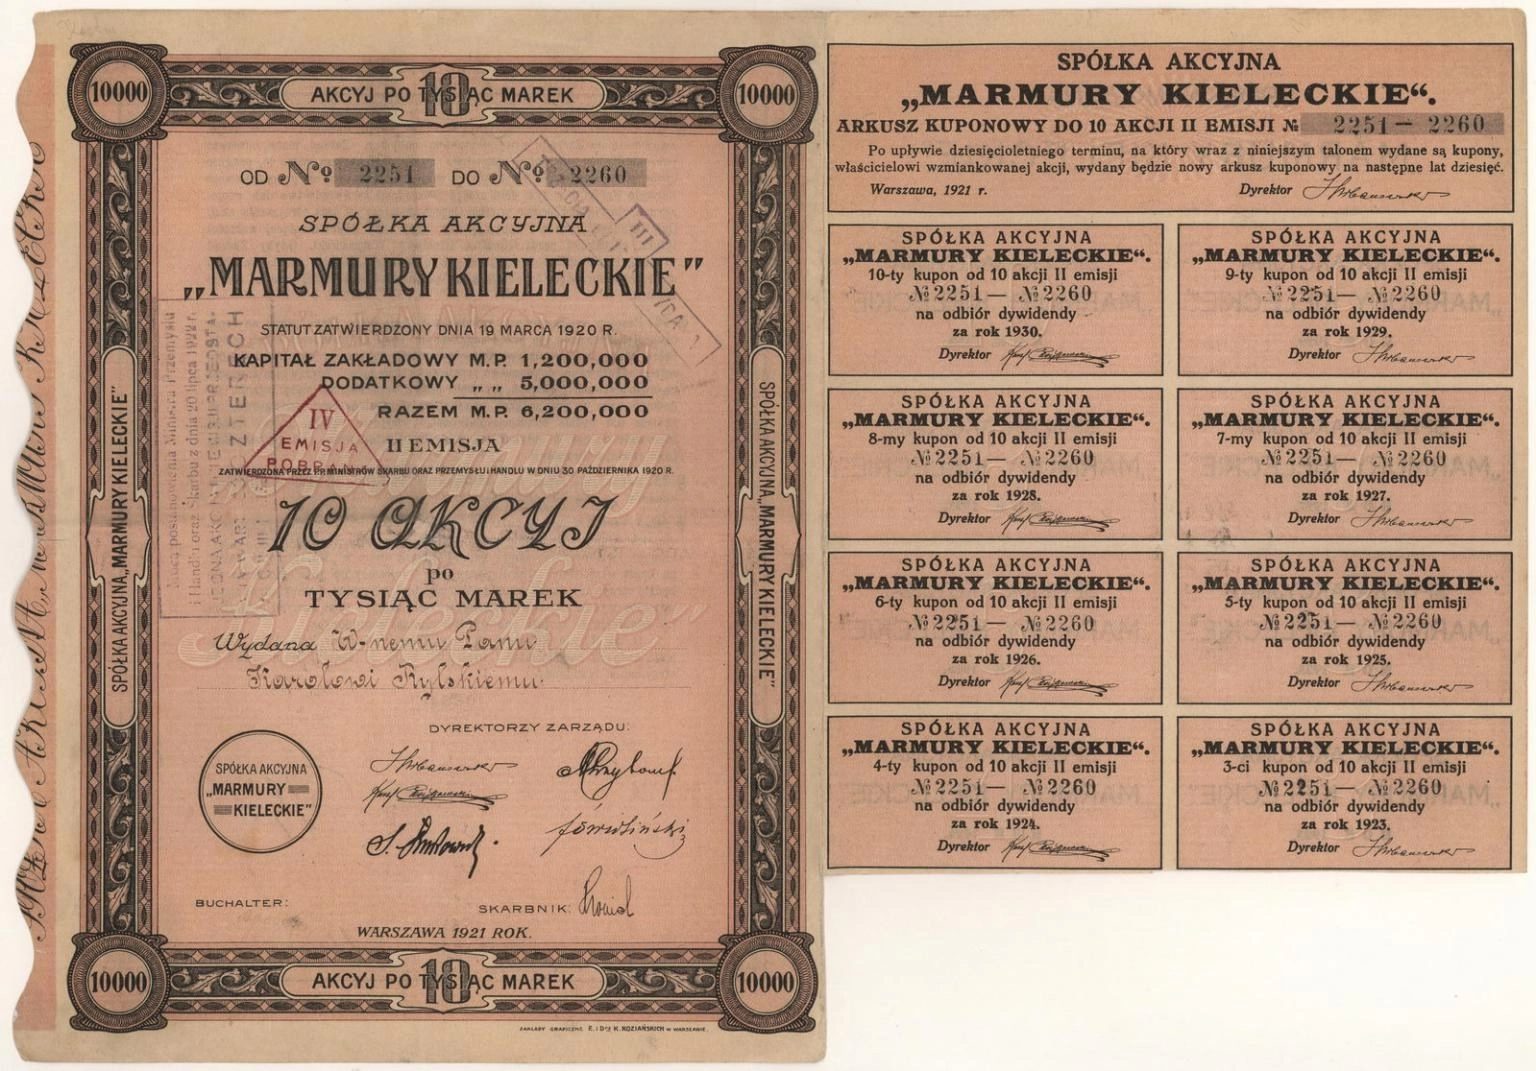 10000
10
AKCYJ PO TYSIĄC MAREK
10000
OD No 2251 DO No 2260
SPÓŁKA AKCYJNA
„MARMURY KIELECKIE"
STATUT ZATWIERDZONY DNIA 19 MARCA 1920 R.
KAPITAŁ ZAKŁADOWY M.P. 1,200,000
DODATKOWY „ „ 5,000,000
RAZEM M.P. 6,200,000
II EMISJA
ZATWIERDZONA PRZEZ P.P. MINISTRÓW SKARBU ORAZ PRZEMYSŁU I HANDLU W DNIU 30 PAŹDZIERNIKA 1920 R.
IV
EMISJA
POBRANA
III
10 AKCYJ
po
TYSIĄC MAREK
Wydana W-nemu Panu
Karolowi Rylskiemu
DYREKTORZY ZARZĄDU:
SPÓŁKA AKCYJNA
„MARMURY
KIELECKIE"
BUCHALTER:
SKARBNIK:
WARSZAWA 1921 ROK.
SPÓŁKA AKCYJNA „MARMURY KIELECKIE"
SPÓŁKA AKCYJNA „MARMURY KIELECKIE"
10000
10
AKCYJ PO TYSIĄC MAREK
10000
ZAKŁADY GRAFICZNE E. i Dra K. KOZIAŃSKICH w WARSZAWIE.
SPÓŁKA AKCYJNA
„MARMURY KIELECKIE“.
ARKUSZ KUPONOWY DO 10 AKCJI II EMISJI № 2251 — 2260
Po upływie dziesięcioletniego terminu, na który wraz z niniejszym talonem wydane są kupony,
właścicielowi wzmiankowanej akcji, wydany będzie nowy arkusz kuponowy na następne lat dziesięć.
Warszawa, 1921 r. Dyrektor
SPÓŁKA AKCYJNA
„MARMURY KIELECKIE“.
10-ty kupon od 10 akcji II emisji
№ 2251 — № 2260
na odbiór dywidendy
za rok 1930.
Dyrektor
SPÓŁKA AKCYJNA
„MARMURY KIELECKIE“.
9-ty kupon od 10 akcji II emisji
№ 2251 — № 2260
na odbiór dywidendy
za rok 1929.
Dyrektor
SPÓŁKA AKCYJNA
„MARMURY KIELECKIE“.
8-my kupon od 10 akcji II emisji
№ 2251 — № 2260
na odbiór dywidendy
za rok 1928.
Dyrektor
SPÓŁKA AKCYJNA
„MARMURY KIELECKIE“.
7-my kupon od 10 akcji II emisji
№ 2251 — № 2260
na odbiór dywidendy
za rok 1927.
Dyrektor
SPÓŁKA AKCYJNA
„MARMURY KIELECKIE“.
6-ty kupon od 10 akcji II emisji
№ 2251 — № 2260
na odbiór dywidendy
za rok 1926.
Dyrektor
SPÓŁKA AKCYJNA
„MARMURY KIELECKIE“.
5-ty kupon od 10 akcji II emisji
№ 2251 — № 2260
na odbiór dywidendy
za rok 1925.
Dyrektor
SPÓŁKA AKCYJNA
„MARMURY KIELECKIE“.
4-ty kupon od 10 akcji II emisji
№ 2251 — № 2260
na odbiór dywidendy
za rok 1924.
Dyrektor
SPÓŁKA AKCYJNA
„MARMURY KIELECKIE“.
3-ci kupon od 10 akcji II emisji
№ 2251 — № 2260
na odbiór dywidendy
za rok 1923.
Dyrektor